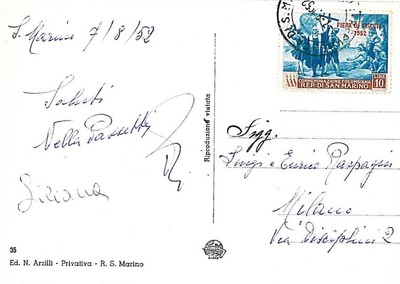 S. Marino 7/8/52
Saluti
Nella
Liliana
Riproduzione vietata
35
Ed. N. Arzilli - Privativa - R. S. Marino
FIERA DI TRIESTE
1952
LIRE 10
COMMEMORAZIONE COLOMBIANA
REP. DI SAN MARINO
Sigg.
Luigi e Enrico
Milano
Via Disciplini 2